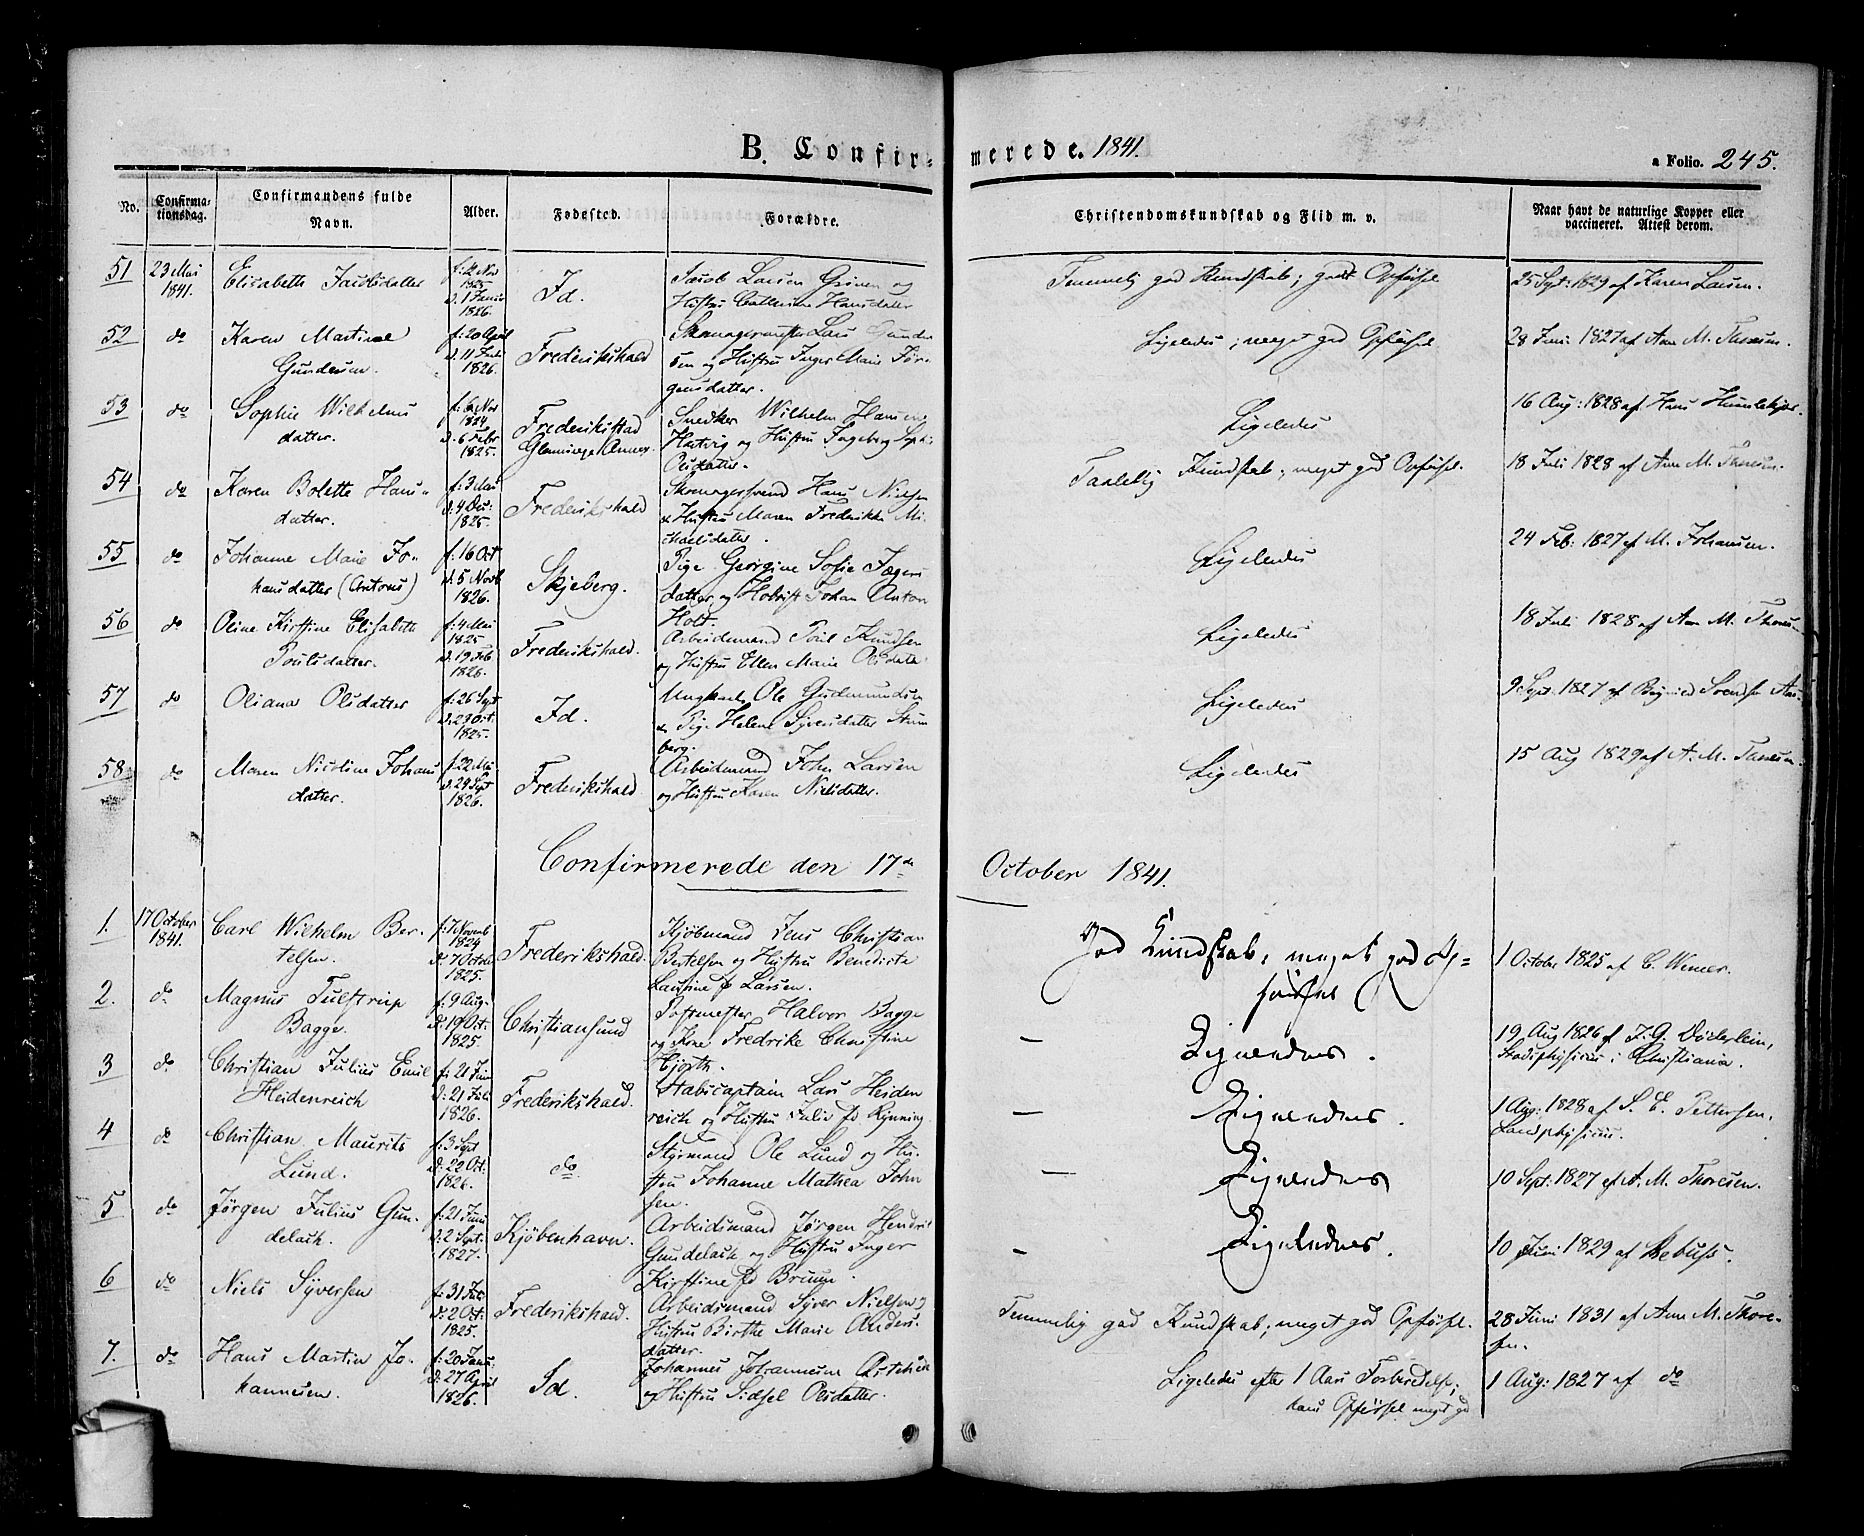 B. Confir=
merede. 1841.
a Folio. 245.
No.
Confirma-
tionsdag.
Confirmandens fulde
Navn.
Alder.
Fødested.
Forældre.
Christendomskundskab og Flid m. v.
Naar havt de naturlige Kopper eller
vaccineret. Attest derom.
51 23 Mai Elisabeth Jacobsdatter f: 4 Nov Jacob Larsen Grinen og Temmelig god Kundskab; godt Opførsel 25 Sept: 1829 af Karen Larsen.
1841. 1825 Id. Hustru Cathrine Hansdatter
d. 1 Janu
1826.
52 do Karen Martine f: 20 April Frederikshald Skomagermester Lars Gunder Ligeledes; meget god Opførsel 28 Juni 1827 af Ann M. Thoresen.
Gundersen. d. 11 Juli sen og Hustru Inger Marie Jør-
1826. gensdatter.
53 do Sophie Wilhelms f: 6 Nov Frederikstad Snedker Wilhelm Hansen Ligeledes 16 Aug: 1828 af Hans
datter. 1824 Hartvig og Hustru Ingeborg Soph
d. 6 Febr Olsdatter.
1825.
54 do Karen Bolette Hans- f: 3 Mai Frederikshald Skomagersvend Hans Nielsen Taalelig Kundskab; meget god Opførsel. 18 Juli 1828 af Ann M. Thoresen.
datter. d. 4 Dec: & Hustru Maren Fredrikke Mi-
1825. chaelsdatter.
55 do Johanne Marie Jo- f: 16 Oct Skjeberg. Pige Georgine Sofie Jægers Ligeledes 24 Feb: 1827 af M. Johansen.
hansdatter (Antons) d. 5 Novb datter, og Johan Anton
1826. Holt.
56 do Oline Kirstine Elisabeth f: 4 Mai Frederikshald. Arbeidsmand Poul Knudsen Ligeledes 18 Juli 1828 af Ann M. Thoresen
Poulsdatter. 1825 og Hustru Ellen Marie Olsdatter
d. 19 Feb
1826.
57 do Oliana Olsdatter f: 26 Sept Id. Ungkarl Ole Gudmundsen Ligeledes 9 Sept: 1827 af Svendsen
d. 23 Oct. & Pige Helene Syversdatter Stum
1825. berg.
58 do Maren Nicoline Johans f: 22 Mai Frederikshald Arbeidsmand John Larsen Ligeledes 15 Aug 1829 af A. M. Thoresen.
datter. d. 24 Sept og Hustru Karen Nielsdatter.
1826.
Confirmerede den 17de October 1841.
1. 17 October Carl Wilhelm Ber- f: 7 Novemb Frederikshald. Kjøbmand Jens Christian God Kundskab, meget god Op= 1 Octobr 1825 af C. Werner.
1841. telsen. 1824 Bertelsen og Hustru Benedicte førsel
d. 7 Octob Laurine fd Larsen.
1825.
2. do Magnus Tulstrup f: 9 Aug. Christiansund Postmester Halvor Bagge — Ligeledes. 19 Aug 1826 af J. G. Døderlein,
Bagge. d. 19 Oct. og Kone Fredrike Christine Stadsphysicus i Christiania.
1825. Hjorth.
3 do Christian Julius Emil f: 21 Juni Frederikshald. Stabscaptain Lars Heiden — Ligeledes. 1 Aug: 1828 af S. E. Pettersen,
Heidenreich d. 21 Juli reich og Hustru Julie fd Rynning Landphysicus.
1826.
4 do Christian Maurits f: 3 Sept do. Styrmand Ole Lund og Hu- — Ligeledes 10 Sept: 1827 af A. M. Thoresen.
Lund. d. 22 Oct. stru Johanne Mathea John
1826. sen.
5 do Jørgen Julius Gun- f: 21 Juni Kjøbenhavn. Arbeidsmand Jørgen Hendrik — Ligeledes. 10 Juni 1829 af Rebuss.
delach. d. 2 Sept. Gundelach og Hustru Inger
1827. Kirstine fd Bruun.
6 do Niels Syversen f: 31 Frederikshald. Arbeidsmand Syver Nielsen og Temmelig god Kundskab; meget god Opførsel. 28 Juni 1831 af Ann M. Thore-
d. 2 Oct. Hustru Birthe Marie Anders- sen.
1825. datter.
7. do Hans Martin Jo- f: 20 Janu Id. Johannes Johannesen og Hustru Sidsel Olsdatter. Ligeledes efter 1 Aars Forberedelse; 1 Aug: 1827 af do
hannesen. d. 27 April hans Opførsel meget god
1826.